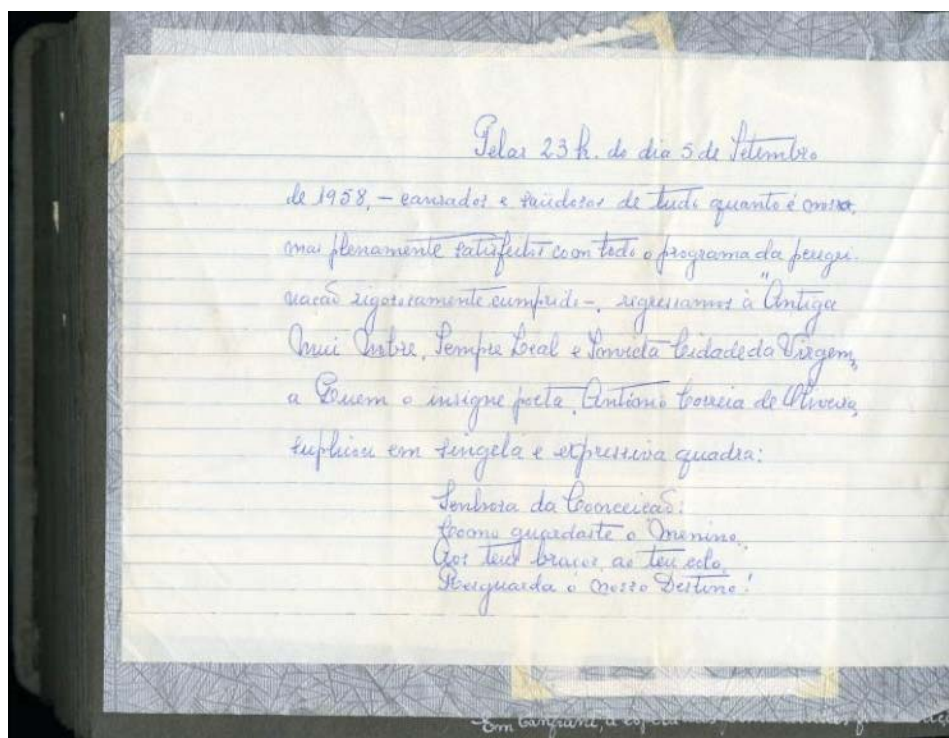 Pelas 23 h. do dia 5 de Setembro
de 1958, – cansados e saüdosos de tudo quanto é nosso,
mas plenamente satisfeitos com todo o programa da peregri-
nação rigorosamente cumprido –, regressamos à "Antiga
Mui Nobre, Sempre Leal e Invicta Cidade da Virgem,
a Quem o insigne poeta, António Correia de Oliveira,
suplicou em singela e expressiva quadra:
Senhora da Conceição:
Como guardaste o Menino,
Aos teus braços, ao teu colo,
Resguarda o nosso Destino!
Em